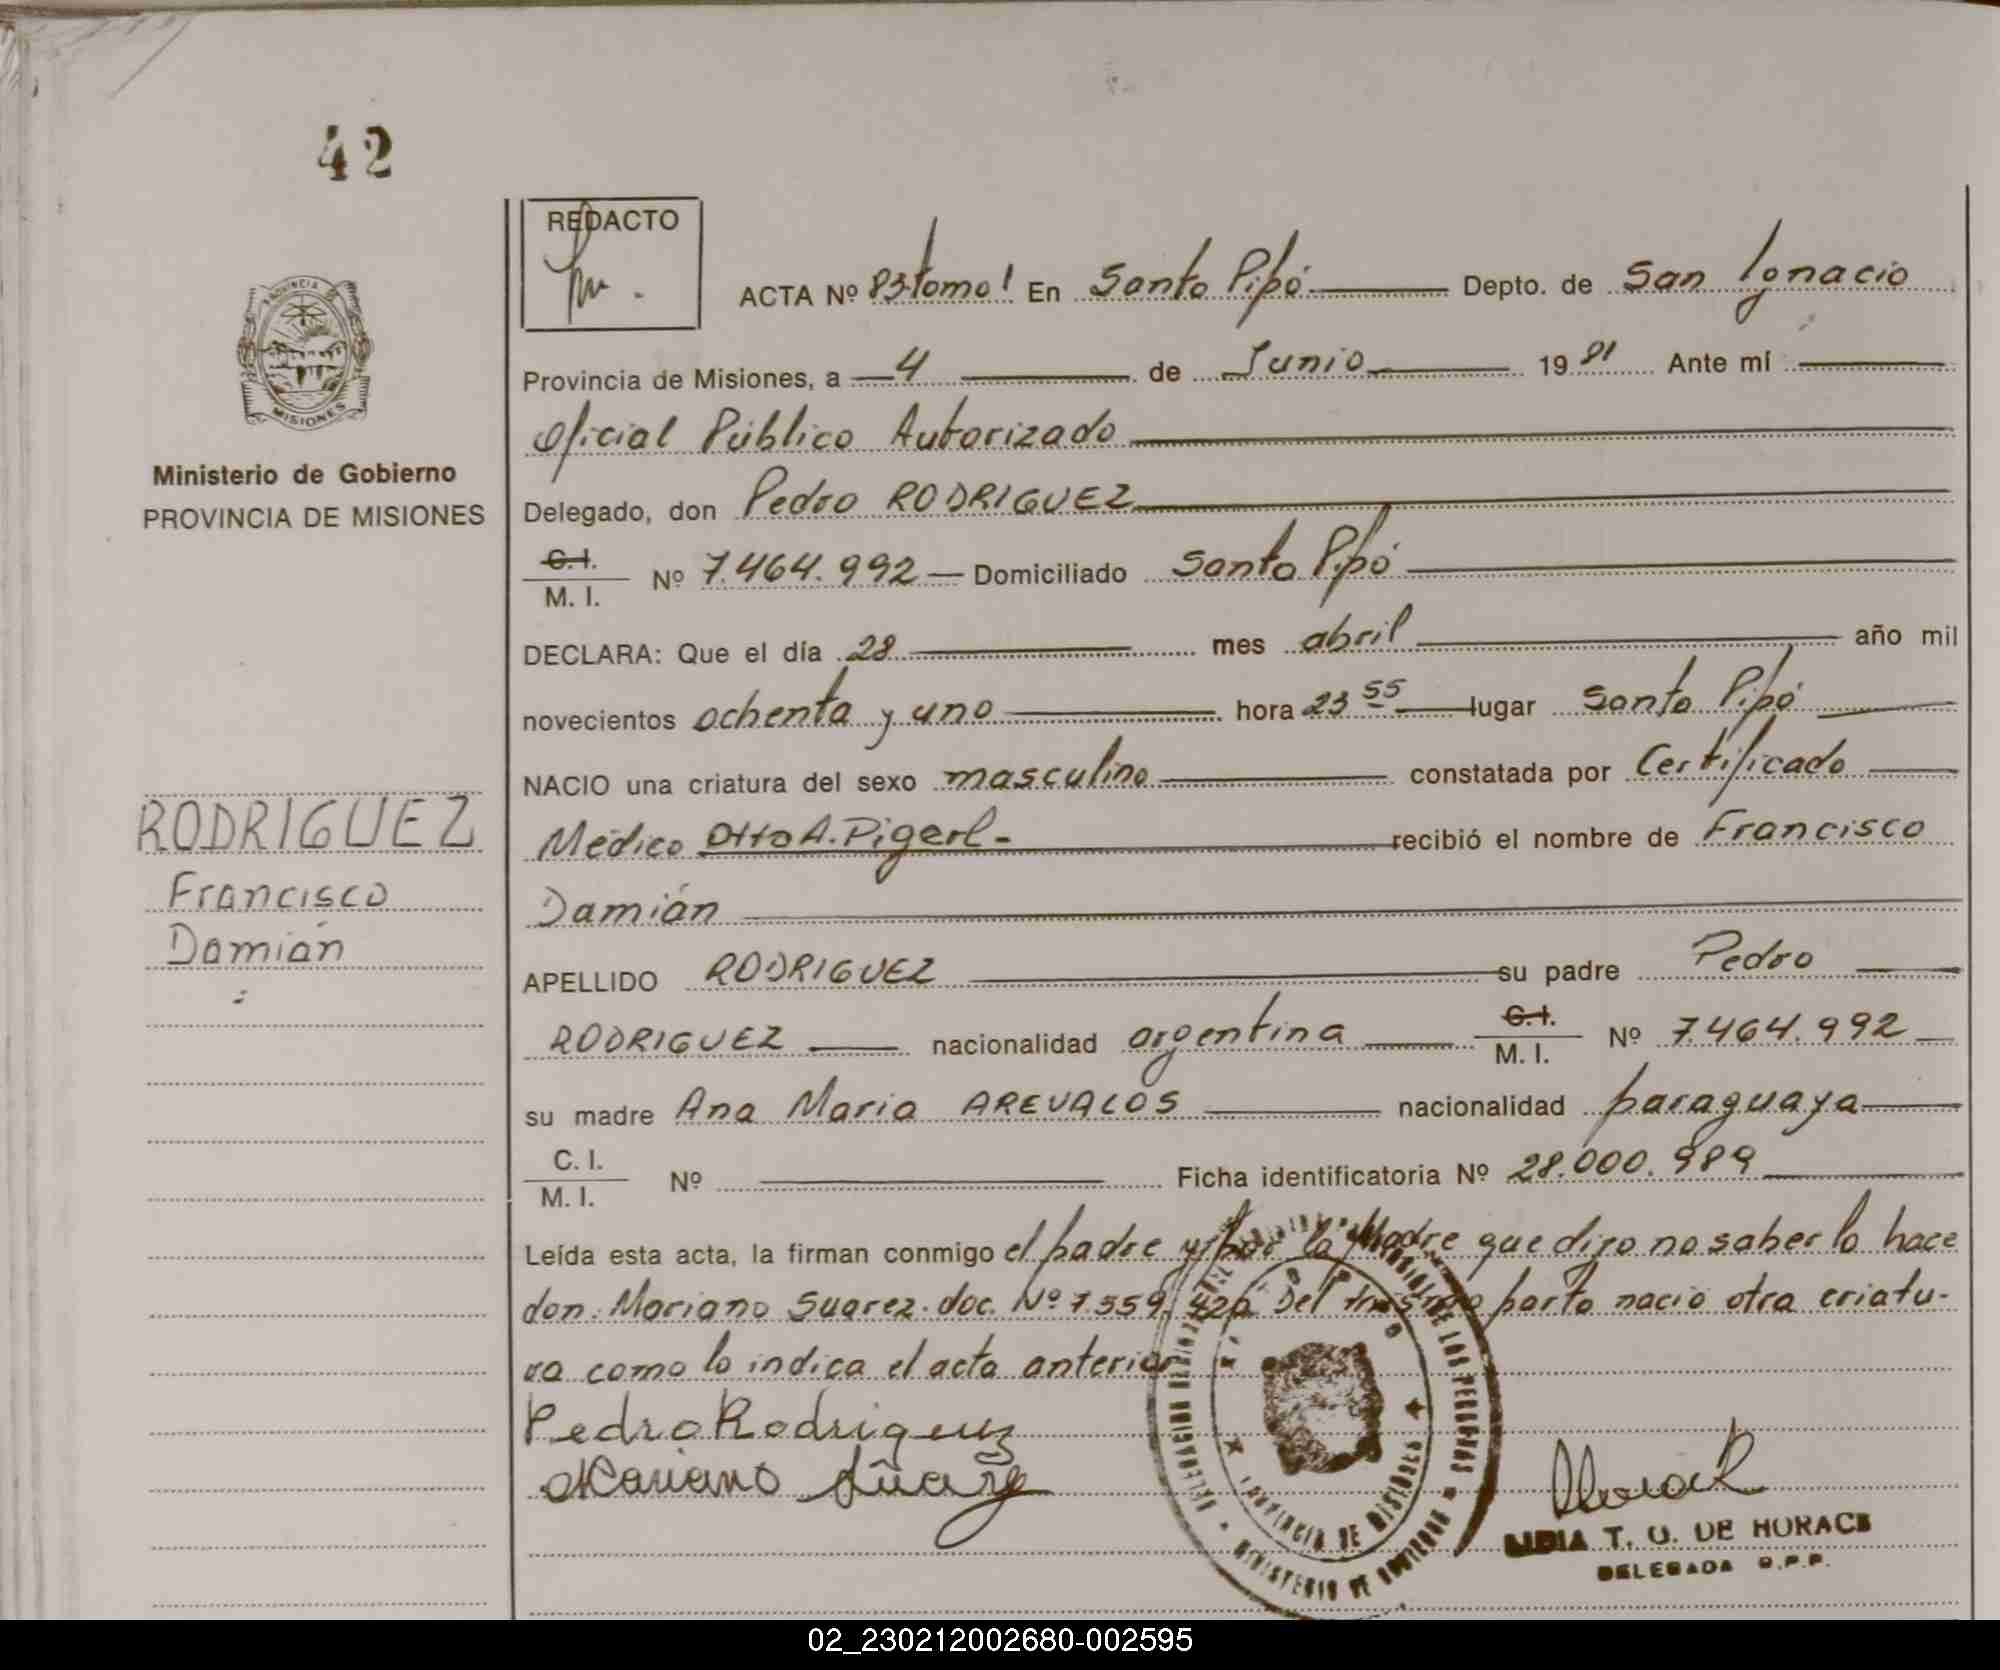 42
REDACTO
ACTA Nº 83 tomo 1 En Santo Pipó Depto. de San Ignacio
Provincia de Misiones, a 4 de Junio 1981 Ante mí
Oficial Público Autorizado
Delegado, don Pedro RODRIGUEZ
C. I.
M. I. Nº 7.464.992 Domiciliado Santo Pipó
DECLARA: Que el día 28 mes abril año mil
novecientos ochenta y uno hora 23 55 lugar Santo Pipó
NACIO una criatura del sexo masculino constatada por Certificado
Médico Otto A. Pigerl- recibió el nombre de Francisco
Damián
APELLIDO RODRIGUEZ su padre Pedro
RODRIGUEZ nacionalidad argentina C. I.
M. I. Nº 7.464.992
su madre Ana Maria AREVALOS nacionalidad paraguaya
C. I.
M. I. Nº Ficha identificatoria Nº 28.000.989
Leída esta acta, la firman conmigo el padre y por la Madre que dijo no saber lo hace
don. Mariano Suarez. doc. Nº 7.559. Del mismo parto nacio otra criatu-
ra como lo indica el acta anterior
Pedro Rodriguez
Mariano Suarez
LIDIA T. G. DE HORACK
DELEGADA R.P.P.
PROVINCIA DE MISIONES
MINISTERIO DE GOBIERNO
PROVINCIA DE
MISIONES
Ministerio de Gobierno
PROVINCIA DE MISIONES
RODRIGUEZ
Francisco
Damián
02_230212002680-002595